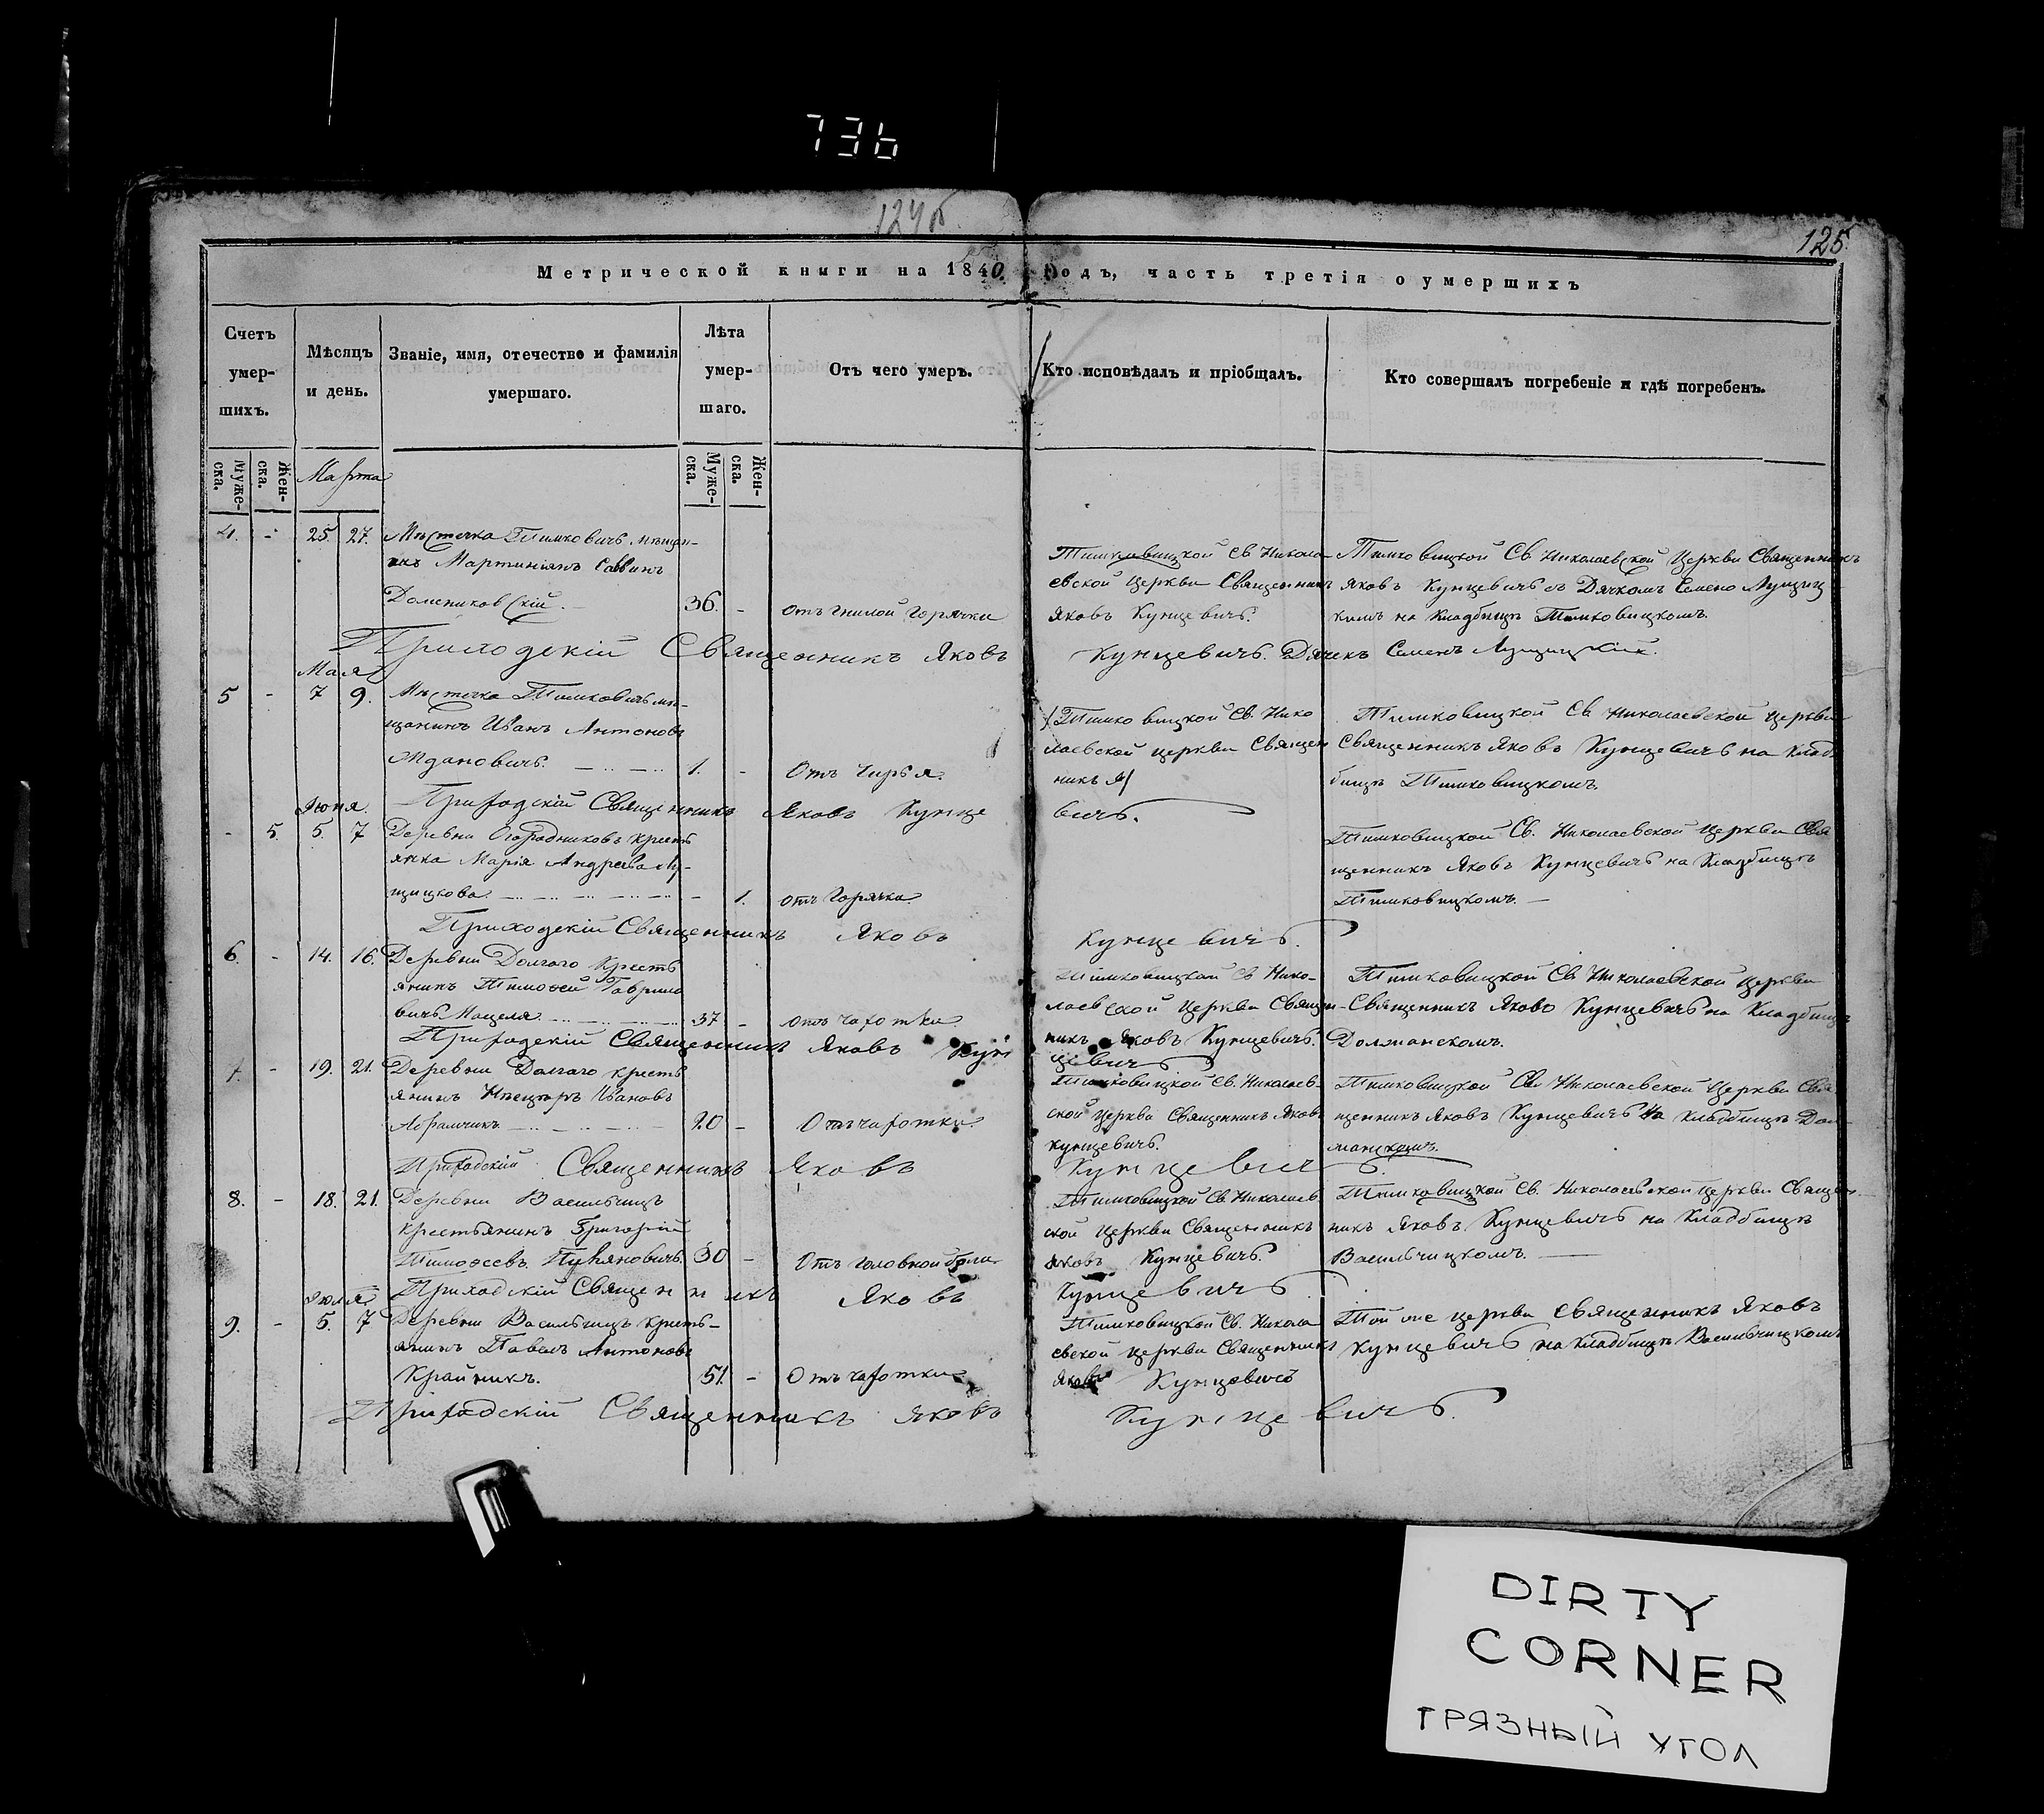 736
124об
125.
Метрической книги на 1840. Годъ, часть третія о умершихъ
Счетъ умер-шихъ.
Мѣсяцъ и день.
Званіе, имя, отечество и фамилія умершаго.
Лѣта умер-шаго.
Отъ чего умеръ.
Кто исповѣдалъ и пріобщалъ.
Кто совершалъ погребеніе и гдѣ погребенъ.
Муже-ска.
Жен-ска.
Марта
Муже-ска.
Жен-ска.
4. - 25. 27. Мѣстечка Тимковичъ мѣщан-
инъ Мартиніянъ Саввинъ
Домениковскій. 36. - отъ гнилой горячки
Тимковицкой Св Никола
евской Церкви Священникъ
Яковъ Кунцевичъ.
Тимковицкой Св Николаевской Церкви Священникъ
Яковъ Кунцевичъ съ Дячкомъ Семено Лущиц
кимъ на Кладбищѣ Тимковицкомъ.
Приходскій Священникъ Яковъ Кунцевичъ. Дячекъ Семенъ Лущицкій.
Мая
5 - 7 9. Мѣстечка Тимковичъ мѣ-
щанинъ Иванъ Антоновъ
Ждановичъ. 1. - Отъ чирья.
Тимковицкой Св. Нико
лаевской церкви Священ
никъ Я
Тимковицкой Св Николаевской церкви
Священникъ Яковъ Кунцевичъ на Клад
бищѣ Тимковицкомъ.
Приходскій Священникъ Яковъ Кунцевичъ.
Июня.
- 5 5. 7 Деревни Огородниковъ кресть
янка Марія Андреева Лу-
щицкова - 1. отъ Горячки
Тимковицкой Св. Николаевской Церкви Свя
щенникъ Яковъ Кунцевичъ на Кладбищѣ
Тимковицкомъ.
Приходскій Священникъ Яковъ Кунцевичъ.
6. - 14. 16. Деревни Долгаго Кресть
янинъ Тимоѳей Гаврило
вичъ Нацеля 37 - отъ чахотки
Тимковицкой Св Нико-
лаевской Церкви Священ-
никъ Яковъ Кунцевичъ.
Тимковицкой Св Николаевской Церкви
Священникъ Яковъ Кунцевичъ на Кладбищѣ
Должанскомъ.
Приходскій Священникъ Яковъ Кунцевичъ
7. - 19. 21. Деревни Долгаго кресть
янинъ Ивановъ
Абрамчикъ 20 - Отъ чахотки.
Тимковицкой Св. Николаев-
ской Церкви Священникъ Яковъ
Кунцевичъ.
Тимковицкой Св Николаевской Церкви Свя
щенникъ Яковъ Кунцевичъ на кладбищѣ Дол
жанскомъ.
Приходскій Священникъ Яковъ Кунцевичъ.
8. - 18. 21. Деревни Васильчицъ
крестьянинъ Григорій
Тимоѳеевъ 30 - Отъ головной боли
Тимковицкой Св. Николаев
ской Церкви Священникъ
Яковъ Кунцевичъ.
Тимковицкой Св. Николаевской церкви Священ-
никъ Яковъ Кунцевичъ на Кладбищѣ
Васильчицкомъ.
Приходскій Священникъ Яковъ Кунцевичъ
Июля
9. - 5. 7 Деревни Васильчицъ кресть-
янинъ Павелъ Антоновъ
Крайникъ. 51. - Отъ чахотки
Тимковицкой Св. Никола
евской церкви Священникъ
Яковъ Кунцевичъ
Той же церкви Священникъ Яковъ
Кунцевичъ на кладбищѣ Васильчицкомъ
Приходскій Священникъ Яковъ Кунцевичъ.
DIRTY
CORNER
ГРЯЗНЫЙ УГОЛ